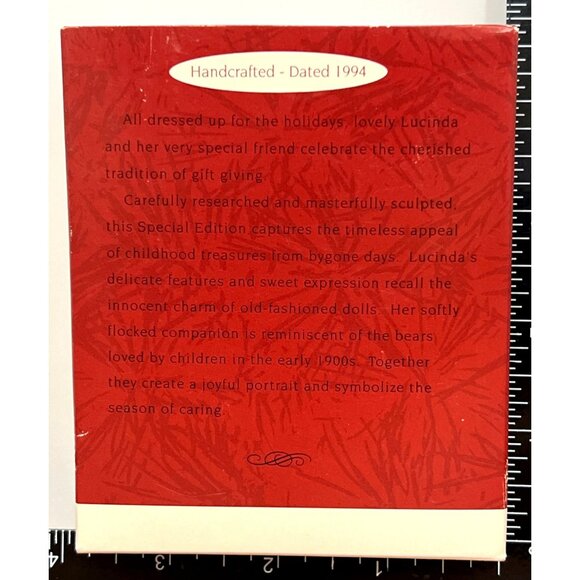 Handcrafted - Dated 1994
All dressed up for the holidays, lovely Lucinda
and her very special friend celebrate the cherished
tradition of gift giving.
Carefully researched and masterfully sculpted,
this Special Edition captures the timeless appeal
of childhood treasures from bygone days. Lucinda's
delicate features and sweet expression recall the
innocent charm of old-fashioned dolls. Her softly
flocked companion is reminiscent of the bears
loved by children in the early 1900s. Together
they create a joyful portrait and symbolize the
season of caring.
4 3 2 1